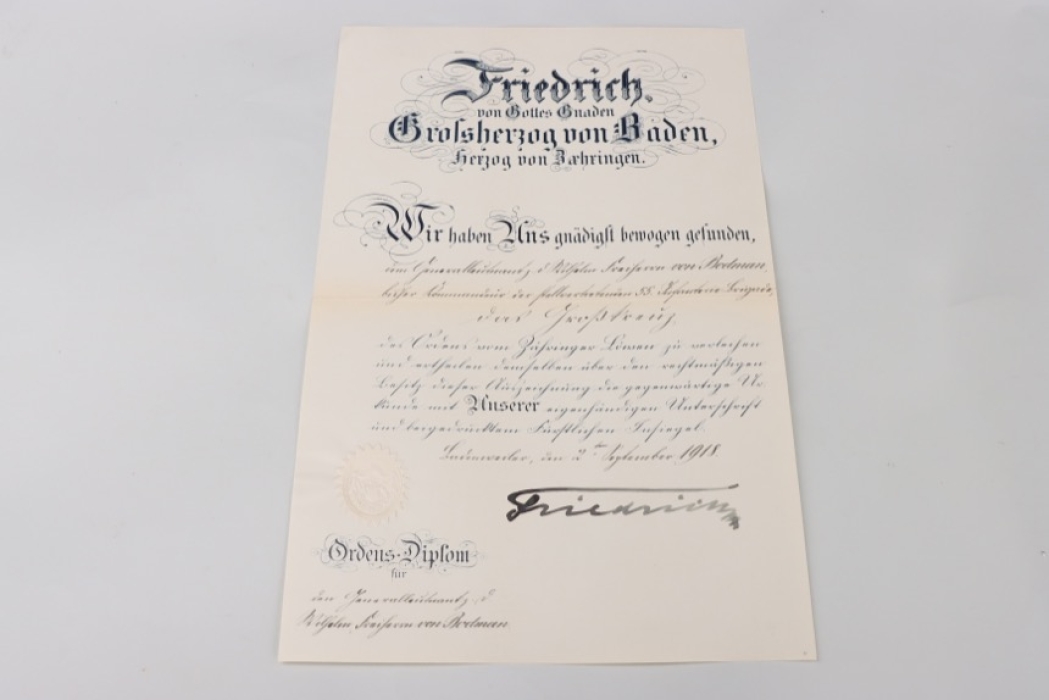 Friedrich.
von Gottes Gnaden
Grossherzog von Baden,
Herzog von Zæhringen.
Wir haben Uns gnädigst bewogen gefunden,
dem Generalleutnant z. D. Wilhelm Freiherrn von Bodman,
bisher Kommandeur der stellvertretenden 55. Infanterie-Brigade,
das Großkreuz
des Ordens vom Zähringer Löwen zu verleihen
und ertheilen demselben über den rechtmäßigen
Besitz dieser Auszeichnung die gegenwärtige Ur-
kunde mit Unserer eigenhändigen Unterschrift
und beigedrucktem Fürstlichen Insiegel.
Badenweiler, den 2ten September 1918.
Friedrich
Ordens-Diplom
für
den Generalleutnant z. D.
Wilhelm Freiherrn von Bodman.